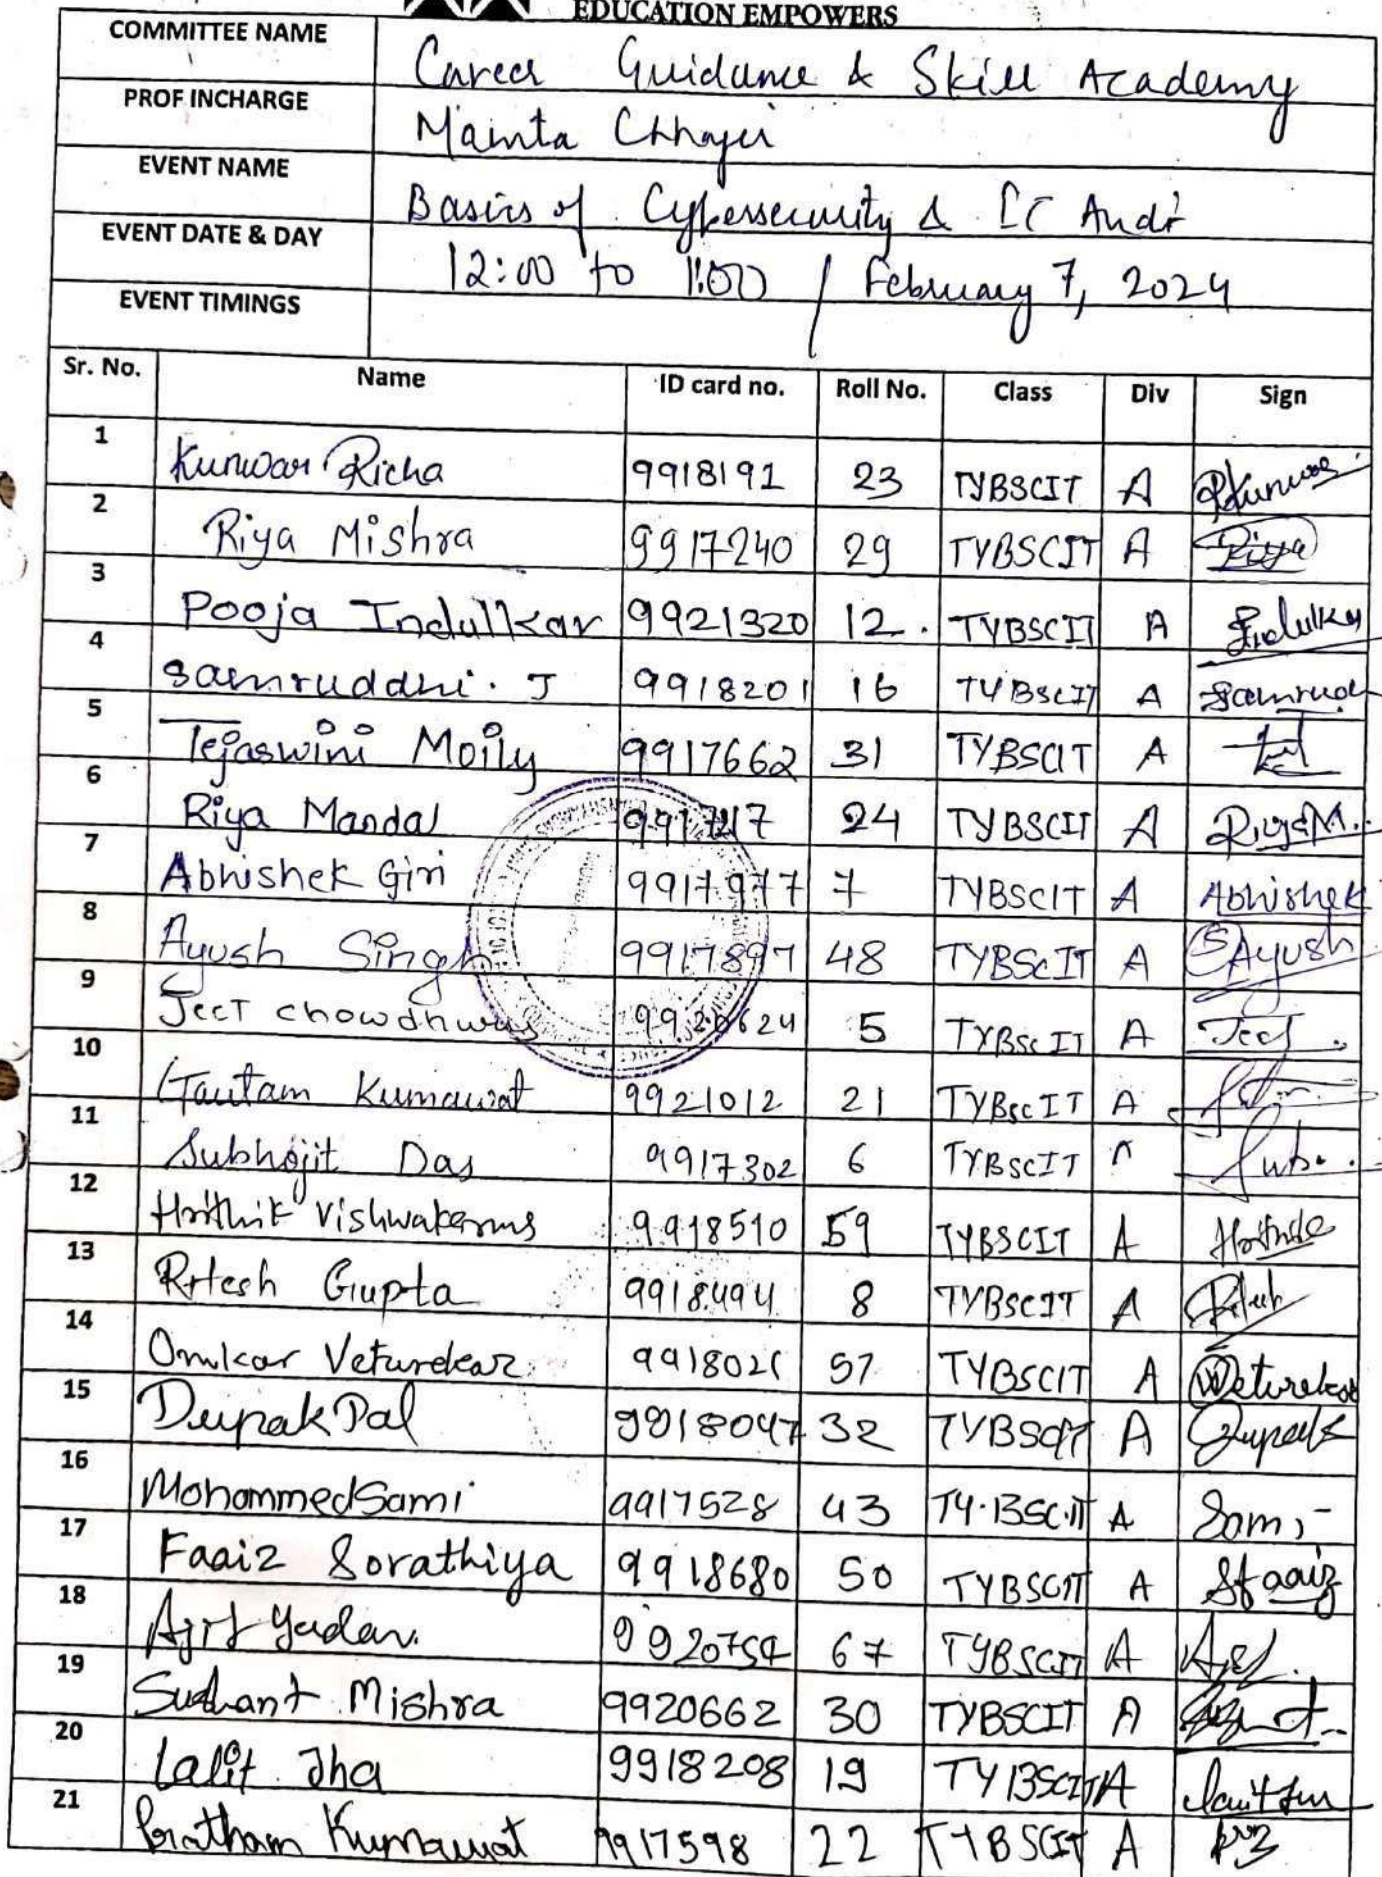 EDUCATION EMPOWERS
COMMITTEE NAME Career Guidance & Skill Academy
PROF INCHARGE Mamta Chhajer
EVENT NAME Basics of Cybersecurity & IT Audit
EVENT DATE & DAY 12:00 to 1:00 / February 7, 2024
EVENT TIMINGS
Sr. No. Name ID card no. Roll No. Class Div Sign
1 Kunwar Richa 9918191 23 TYBSCIT A RKunwar
2 Riya Mishra 9917240 29 TYBSCIT A Riya
3 Pooja Indulkar 9921320 12. TYBSCIT A Indulkar
4 Samruddhi. J 9918201 16 TYBSCIT A Samrudh
5 Tejaswini Moily 9917662 31 TYBSCIT A
6 Riya Mandal 24 TYBSCIT A RiyaM.
7 Abhishek Giri 9917977 7 TYBSCIT A Abhishek
8 Ayush Singh 9917897 48 TYBScIT A SAyush
9 Jeet chowdhury 9920624 5 TYBScIT A Jeet
10 Gautam Kumawat 9921012 21 TYBScIT A
11 Subhojit Das 9917302 6 TYBSCIT A
12 Hrithik Vishwakarma 9918510 59 TYBSCIT A Hrithik
13 Ritesh Gupta 9918494 8 TYBSCIT A Ritesh
14 Omkar Veturekar 9918021 57 TYBSCIT A Veturekar
15 Deepak Pal 9918047 32 TYBSCIT A Deepak
16 Mohammed Sami 9917528 43 TY.BSC.IT A Sami
17 Faaiz Sorathiya 9918680 50 TYBSCIT A Sfaaiz
18 Ajit Yadav. 9920754 67 TYBSCIT A
19 Sushant Mishra 9920662 30 TYBSCIT A
20 Lalit Jha 9918208 19 TYBSCIT A
21 Pratham Kumawat 9917598 22 TYBSCIT A